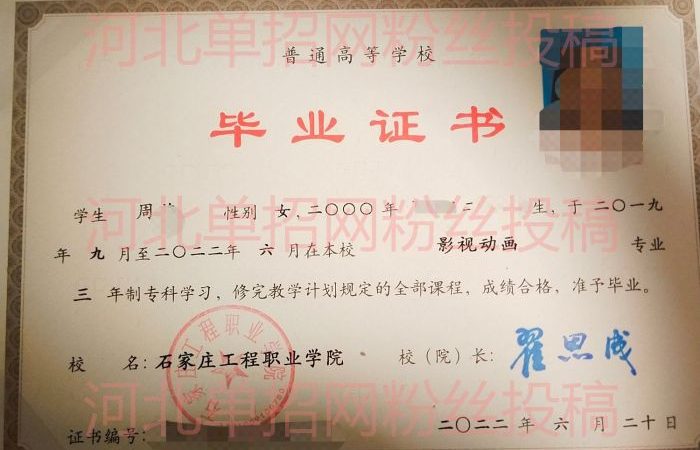 河北单招网粉丝投稿
普通高等学校
毕业证书
学生 周 性别 女，二〇〇〇年 生，于二〇一九
河北单招网粉丝投稿
年 九 月至二〇二二年 六 月在本校 影视动画 专业
三 年制专科学习，修完教学计划规定的全部课程，成绩合格，准予毕业。
校 名：石家庄工程职业学院 校（院）长：翟思成
石家庄工程职业学院
河北单招网粉丝投稿
证书编号： 二〇二二年 六 月 二十日